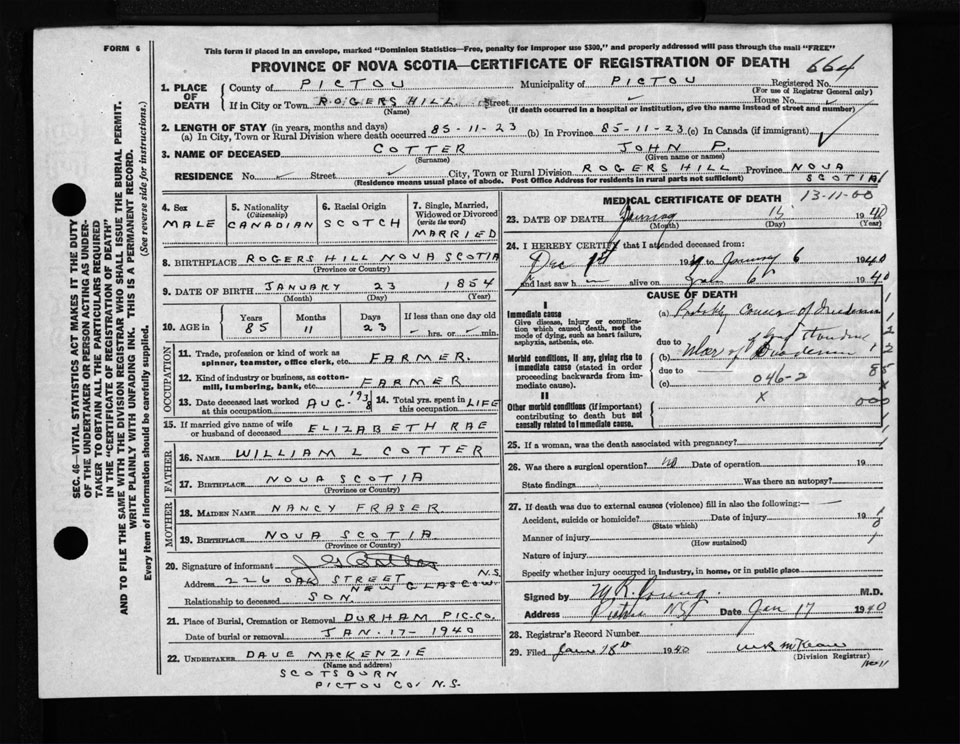 FORM 6
This form if placed in an envelope, marked "Dominion Statistics—Free, penalty for improper use $300," and properly addressed will pass through the mail "FREE"
PROVINCE OF NOVA SCOTIA—CERTIFICATE OF REGISTRATION OF DEATH 664
1. PLACE OF DEATH County of PICTOU Municipality of PICTOU Registered No.
(For use of Registrar General only)
If in City or Town ROGERS HILL Street House No.
(Name) (If death occurred in a hospital or institution, give the name instead of street and number)
2. LENGTH OF STAY (in years, months and days)
(a) In City, Town or Rural Division where death occurred 85-11-23 (b) In Province 85-11-23 (c) In Canada (if immigrant)
3. NAME OF DECEASED COTTER JOHN P.
(Surname) (Given name or names)
RESIDENCE No. Street City, Town or Rural Division ROGERS HILL Province NOVA SCOTIA
(Residence means usual place of abode. Post Office Address for residents in rural parts not sufficient)
4. Sex MALE
5. Nationality (Citizenship) CANADIAN
6. Racial Origin SCOTCH
7. Single, Married, Widowed or Divorced (write the word) MARRIED
8. BIRTHPLACE ROGERS HILL NOVA SCOTIA
(Province or Country)
9. DATE OF BIRTH JANUARY 23 1854
(Month) (Day) (Year)
10. AGE in Years 85 Months 11 Days 23 If less than one day hrs. or min.
OCCUPATION
11. Trade, profession or kind of work as spinner, teamster, office clerk, etc. FARMER.
12. Kind of industry or business, as cotton-mill, lumbering, bank, etc. FARMER
13. Date deceased last worked at this occupation AUG. 1938 14. Total yrs. spent in this occupation LIFE
15. If married give name of wife or husband of deceased ELIZABETH RAE
FATHER
16. Name WILLIAM L COTTER
17. BIRTHPLACE NOVA SCOTIA
(Province or Country)
MOTHER
18. MAIDEN NAME NANCY FRASER
19. BIRTHPLACE NOVA SCOTIA
(Province or Country)
20. Signature of informant
Address 226 OAK STREET NEW GLASGOW N.S.
Relationship to deceased SON.
21. Place of Burial, Cremation or Removal DURHAM PIC.CO.
Date of burial or removal JAN.-17-1940
22. UNDERTAKER DAVE MACKENZIE
(Name and address)
SCOTSBURN
PICTOU CO. N.S.
MEDICAL CERTIFICATE OF DEATH 13-11-00
23. DATE OF DEATH 1940
(Month) (Day) (Year)
24. I HEREBY CERTIFY that I attended deceased from:
Dec 1st to January 6 1940
and last saw h alive on Jan 6 1940
CAUSE OF DEATH
I
Immediate cause
Give disease, injury or complication which caused death, not the mode of dying, such as heart failure, asphyxia, asthenia, etc.
(a) Probably Cancer of Duodenum
due to of long standing
Morbid conditions, if any, giving rise to immediate cause (stated in order proceeding backwards from immediate cause).
(b) Ulcer of Duodenum
due to
(c) 046-2
II
Other morbid conditions (if important) contributing to death but not causally related to immediate cause.
25. If a woman, was the death associated with pregnancy?
26. Was there a surgical operation? no Date of operation 19
State findings Was there an autopsy?
27. If death was due to external causes (violence) fill in also the following:—
Accident, suicide or homicide? Date of injury 19
(State which)
Manner of injury
(How sustained)
Nature of injury
Specify whether injury occurred in industry, in home, or in public place
Signed by M.R. Young M.D.
Address Pictou N.S. Date Jan 17 1940
28. Registrar's Record Number
29. Filed 18th 1940
(Division Registrar)
SEC. 46—VITAL STATISTICS ACT MAKES IT THE DUTY
OF THE UNDERTAKER OR PERSON ACTING AS UNDERTAKER TO OBTAIN ALL THE PARTICULARS REQUIRED
IN THE "CERTIFICATE OF REGISTRATION OF DEATH"
AND TO FILE THE SAME WITH THE DIVISION REGISTRAR WHO SHALL ISSUE THE BURIAL PERMIT.
WRITE PLAINLY WITH UNFADING INK. THIS IS A PERMANENT RECORD.
Every item of information should be carefully supplied. (See reverse side for instructions.)